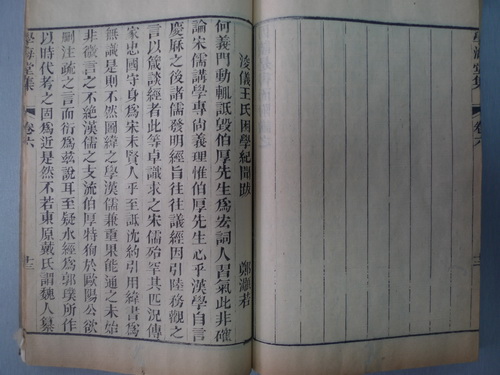 學海堂集
卷六
十二
浚儀王氏困學紀聞跋
鄭灝若
何義門動輒詆毀伯厚先生爲宏詞人習氣此非確
論宋儒講學專尙義理惟伯厚先生心乎漢學自言
慶厤之後諸儒發明經旨往往議經因引陸務觀之
言以箴談經者此等卓識求之宋儒殆罕其匹況傳
家忠國守身爲宋末賢人乎至詆沈約引用緯書爲
無識是則不然圖緯之學漢儒兼重果能通之未始
非微言之不絕漢儒之支流伯厚特狥於歐陽公欲
刪注疏之言而衍爲茲說耳至疑水經爲郭璞所作
以時代考之固爲近是然不若東原戴氏謂魏人纂
學海堂集
卷六
十三